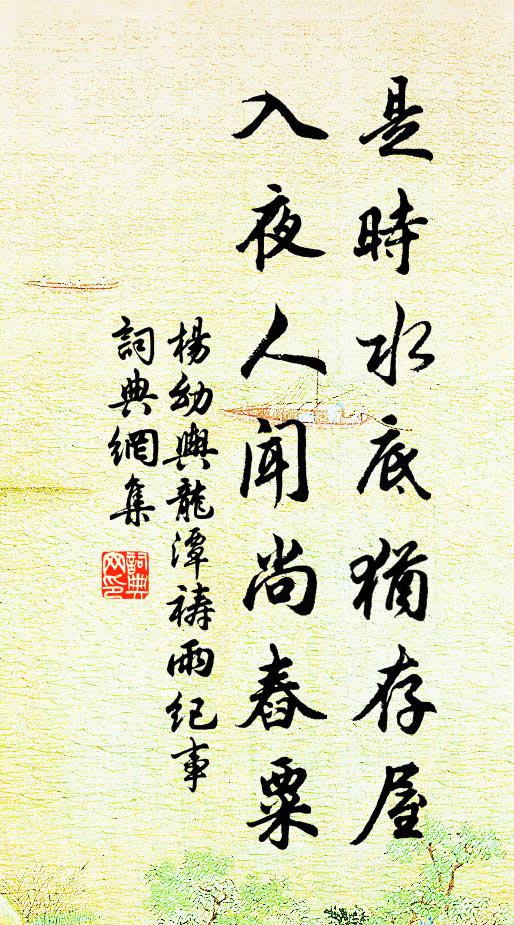 是時水底猶存屋
入夜人聞尚舂粟
楊幼輿龍潭禱雨紀事
詞典網集
詞典網印